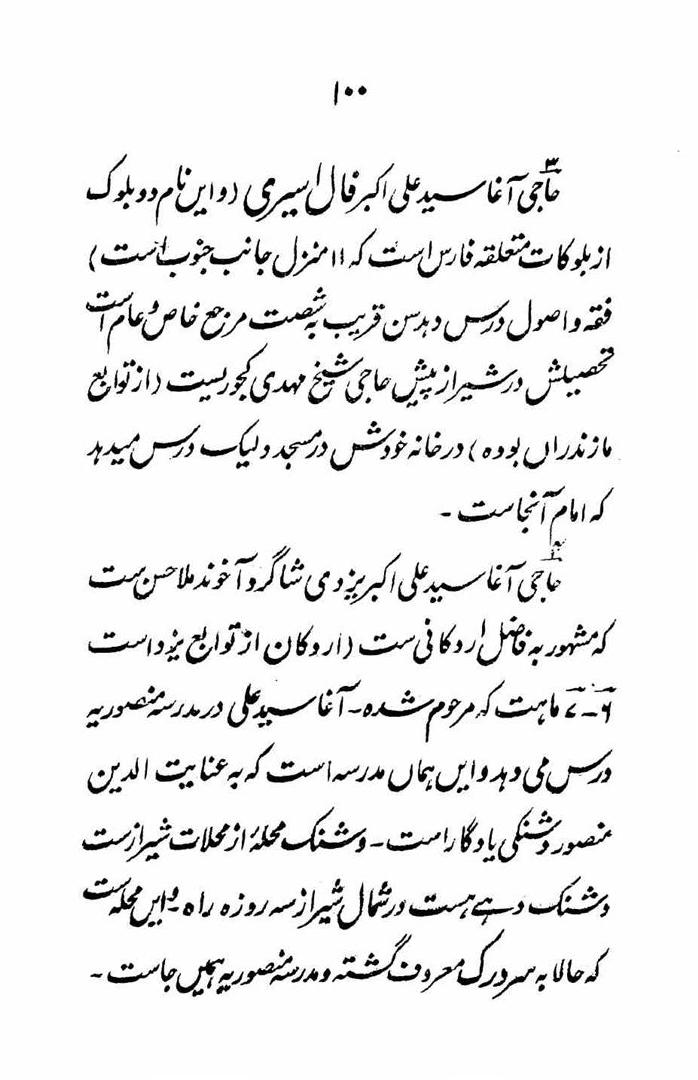 ۱۰۰
۳ حاجی آغا سید علی اکبر فال اسیری (و این نام دو بلوک
از بلوکات متعلقہ فارس است کہ ۱۱ منزل جانب جنوب است)
فقہ و اصول درس دہد سن قریب بہ شصت مرجع خاص و عام است
تحصیلش در شیراز پیش حاجی شیخ مہدی کجوریست (از توابع
مازندراں بودہ) در خانہ خودش در مسجد و لیک درس میدہد
کہ امام آنجاست ۔
۴ حاجی آغا سید علی اکبر یزدی شاگرد آخوند ملا حسن ست
کہ مشہور بہ فاضل اردکانی ست (اردکان از توابع یزد است
۶-۷ ماہت کہ مرحوم شدہ ۔ آغا سید علی در مدرسہ منصوریہ
درس می دہد و ایں ہماں مدرسہ است کہ بہ عنایت الدین
منصور دشتکی یادگار است ۔ دشتک محلۂ از محلات شیراز ست
دشتک دہے ہست در شمال شیراز سہ روزہ راہ ۔ وایں محلہ ست
کہ حالا بہ سر درک معروف گشتہ و مدرسہ منصوریہ ہمیں جاست ۔